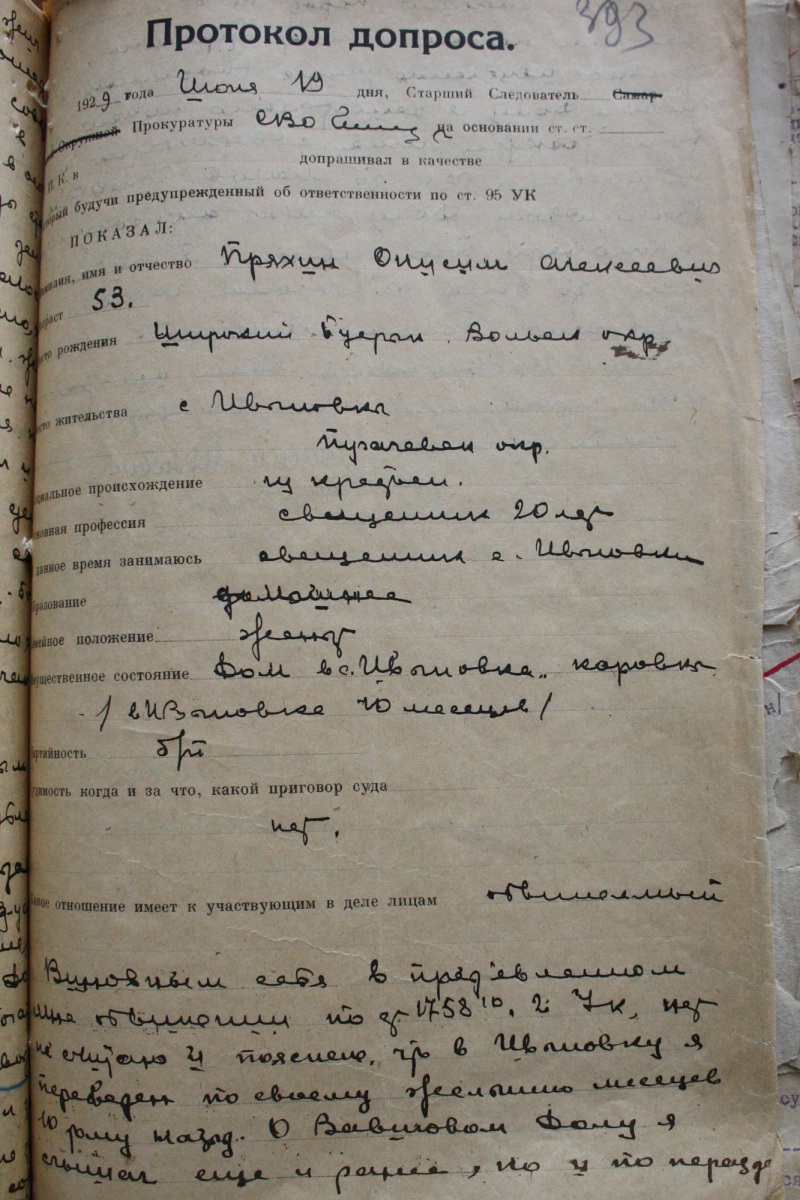 393
Протокол допроса.
1929 года Июня 19 дня, Старший Следователь Самар-
Окружной Прокуратуры СВО на основании ст. ст.
допрашивал в качестве
П. К. в
будучи предупрежденный об ответственности по ст. 95 УК
ПОКАЗАЛ:
имя и отчество Пряхин Онисим Алексеевич
53.
рождения Широкий Буерак Вольск окр.
жительства с Ивановка
Пугачевск окр.
происхождение из крестьян.
профессия священник 20 лет
время занимаюсь священник с. Ивановки
домашнее
положение женат
состояние Дом в с. Ивановка, корова
/ в Ивановке 10 месяцев /
б/п
когда и за что, какой приговор суда
нет.
отношение имеет к участвующим в деле лицам обвиняемый
Виновным себя в предъявленном
мне обвинении по ст 17 58¹⁰ ч. 2 УК, нет
не считаю и поясняю, что в Ивановку я
переведен по своему желанию месяцев
10 тому назад. О Вавиловом Долу я
слышал еще и ранее, но и по переезде